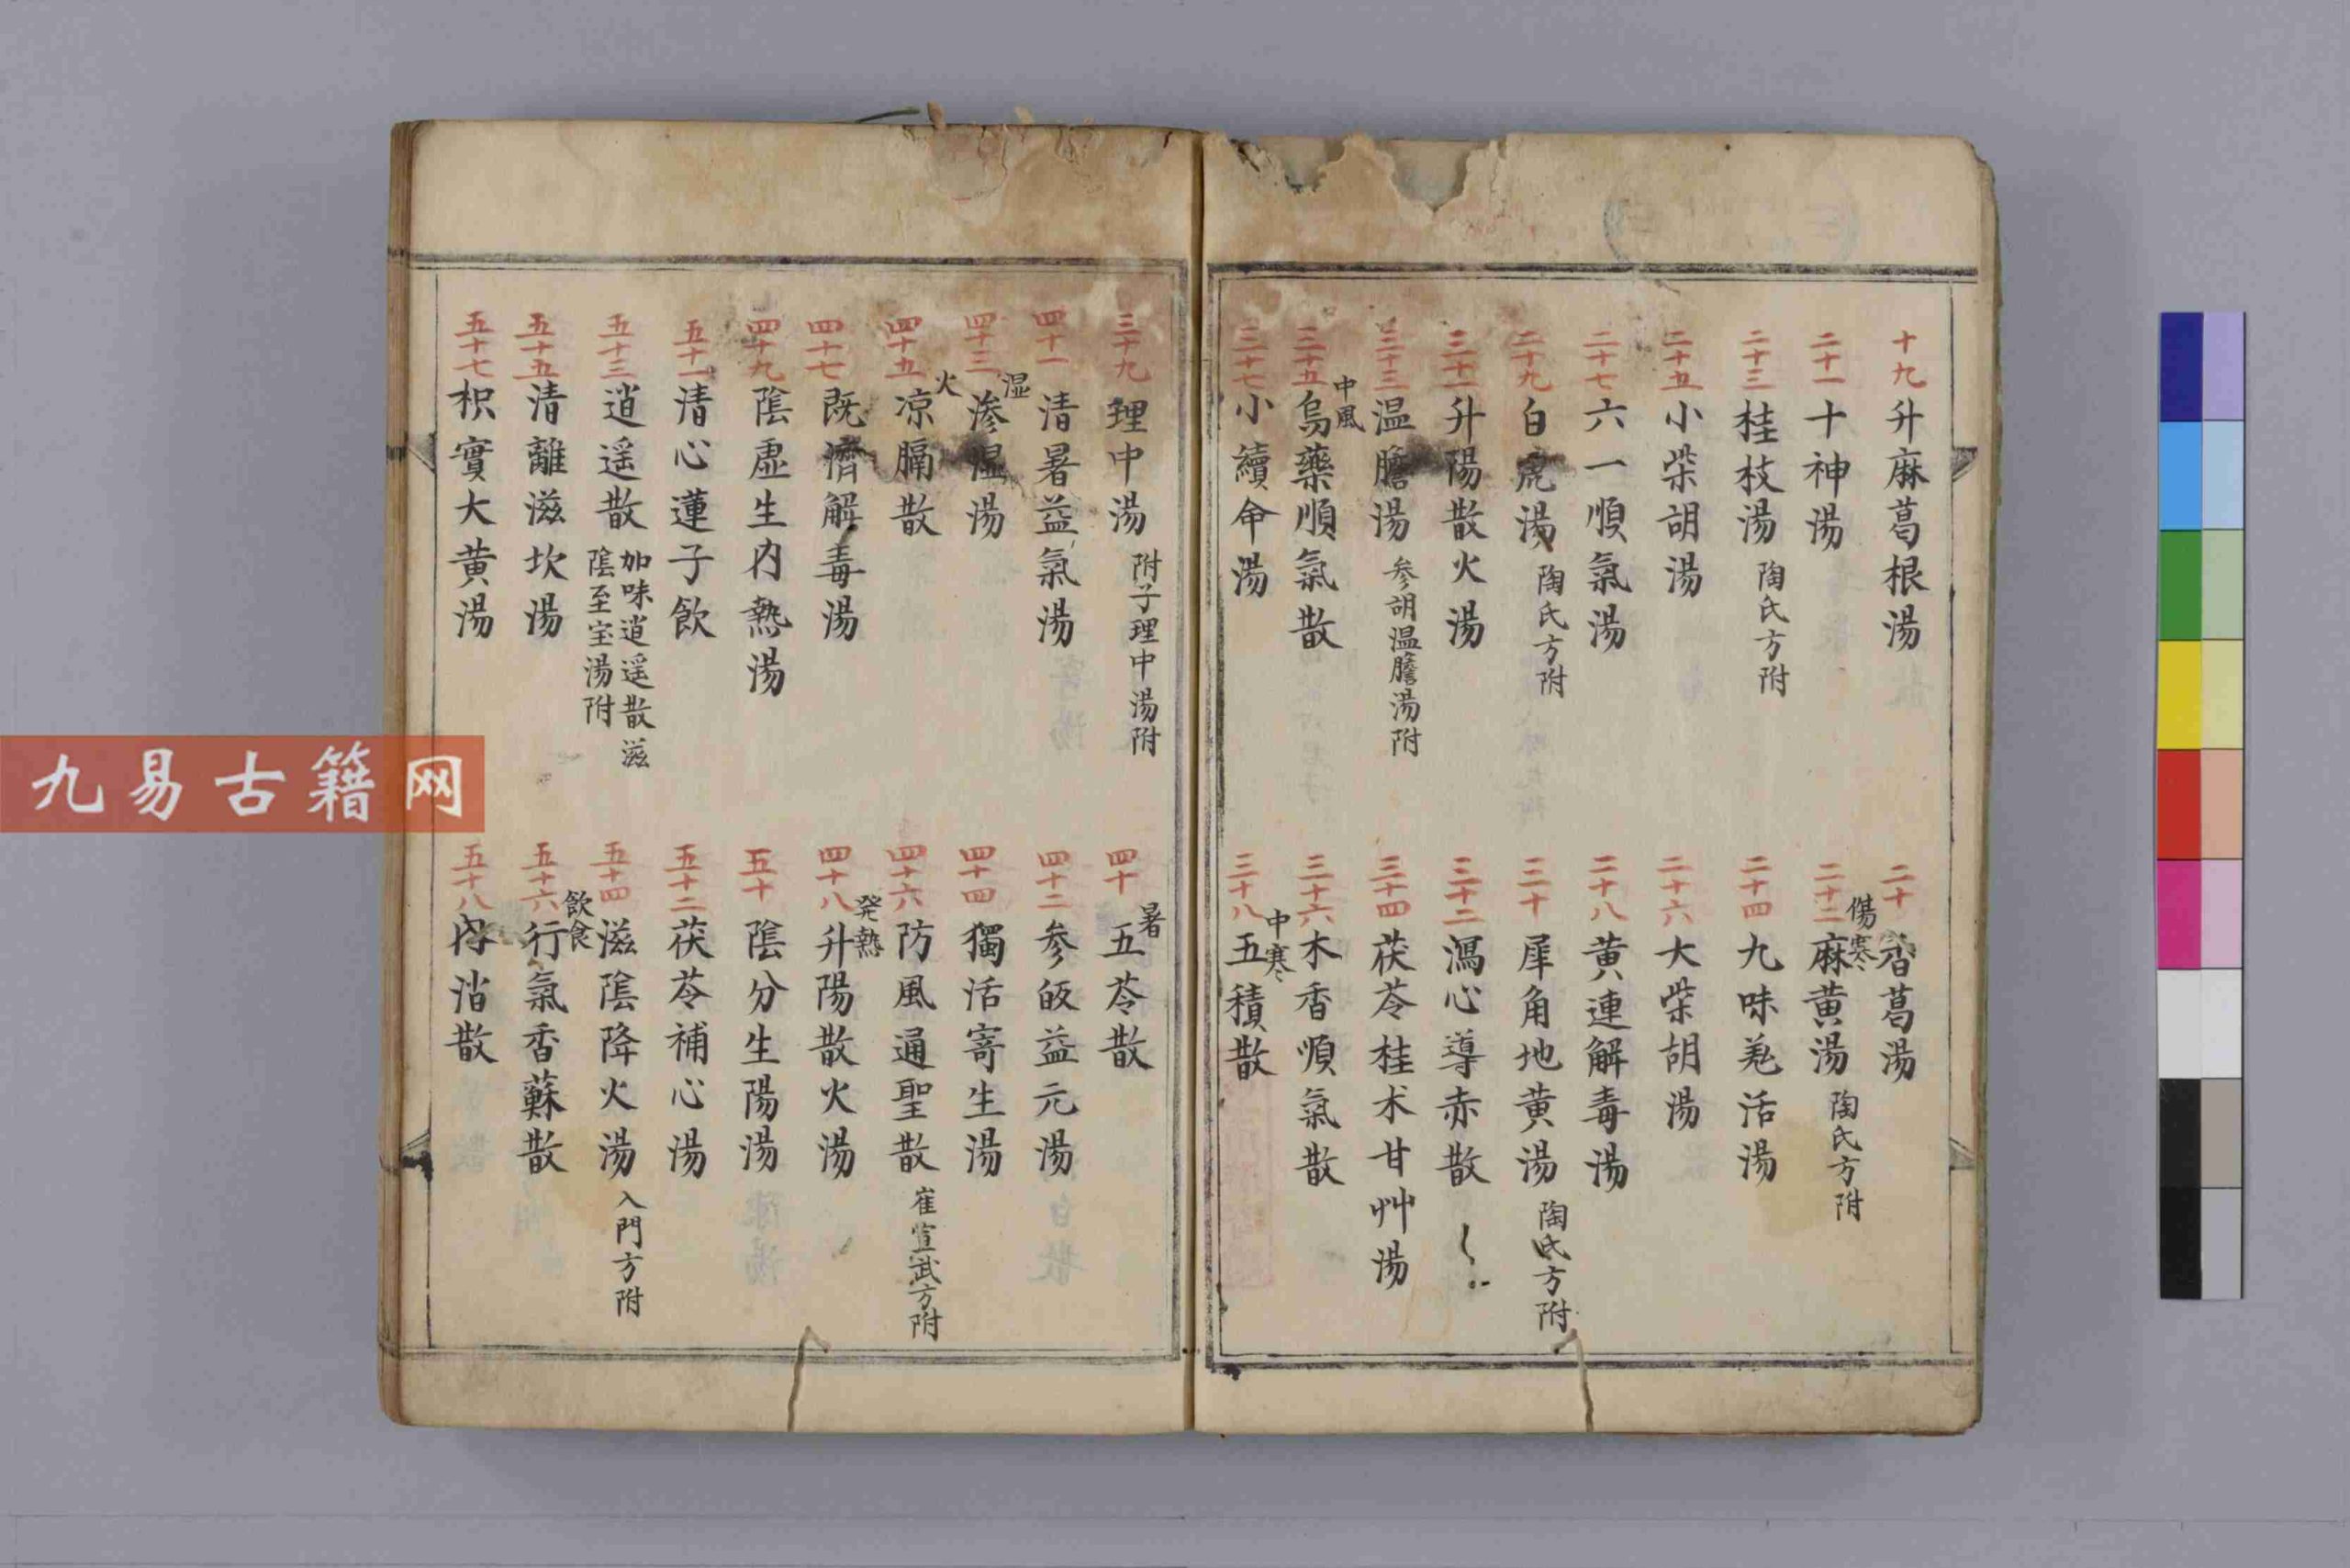 十九 升麻葛根湯
二十 香葛湯
二十一 十神湯
傷寒
二十二 麻黄湯 陶氏方附
二十三 桂枝湯 陶氏方附
二十四 九味羌活湯
二十五 小柴胡湯
二十六 大柴胡湯
二十七 六一順氣湯
二十八 黄連解毒湯
二十九 白虎湯 陶氏方附
三十 犀角地黄湯 陶氏方附
三十一 升陽散火湯
三十二 瀉心導赤散
三十三 温膽湯 参胡温膽湯附
三十四 茯苓桂朮甘艸湯
中風
三十五 烏藥順氣散
三十六 木香順氣散
三十七 小續命湯
中寒
三十八 五積散
三十九 理中湯 附子理中湯附
暑
四十 五苓散
四十一 清暑益氣湯
四十二 参皈益元湯
湿
四十三 滲湿湯
四十四 獨活寄生湯
火
四十五 凉膈散
四十六 防風通聖散 崔宣武方附
四十七 既濟解毒湯
発熱
四十八 升陽散火湯
四十九 陰虚生内熱湯
五十 陰分生陽湯
五十一 清心蓮子飲
五十二 茯苓補心湯
五十三 逍遥散 加味逍遥散滋
陰至宝湯附
五十四 滋陰降火湯 入門方附
五十五 清離滋坎湯
飲食
五十六 行氣香蘇散
五十七 枳實大黄湯
五十八 内消散
九易古籍网